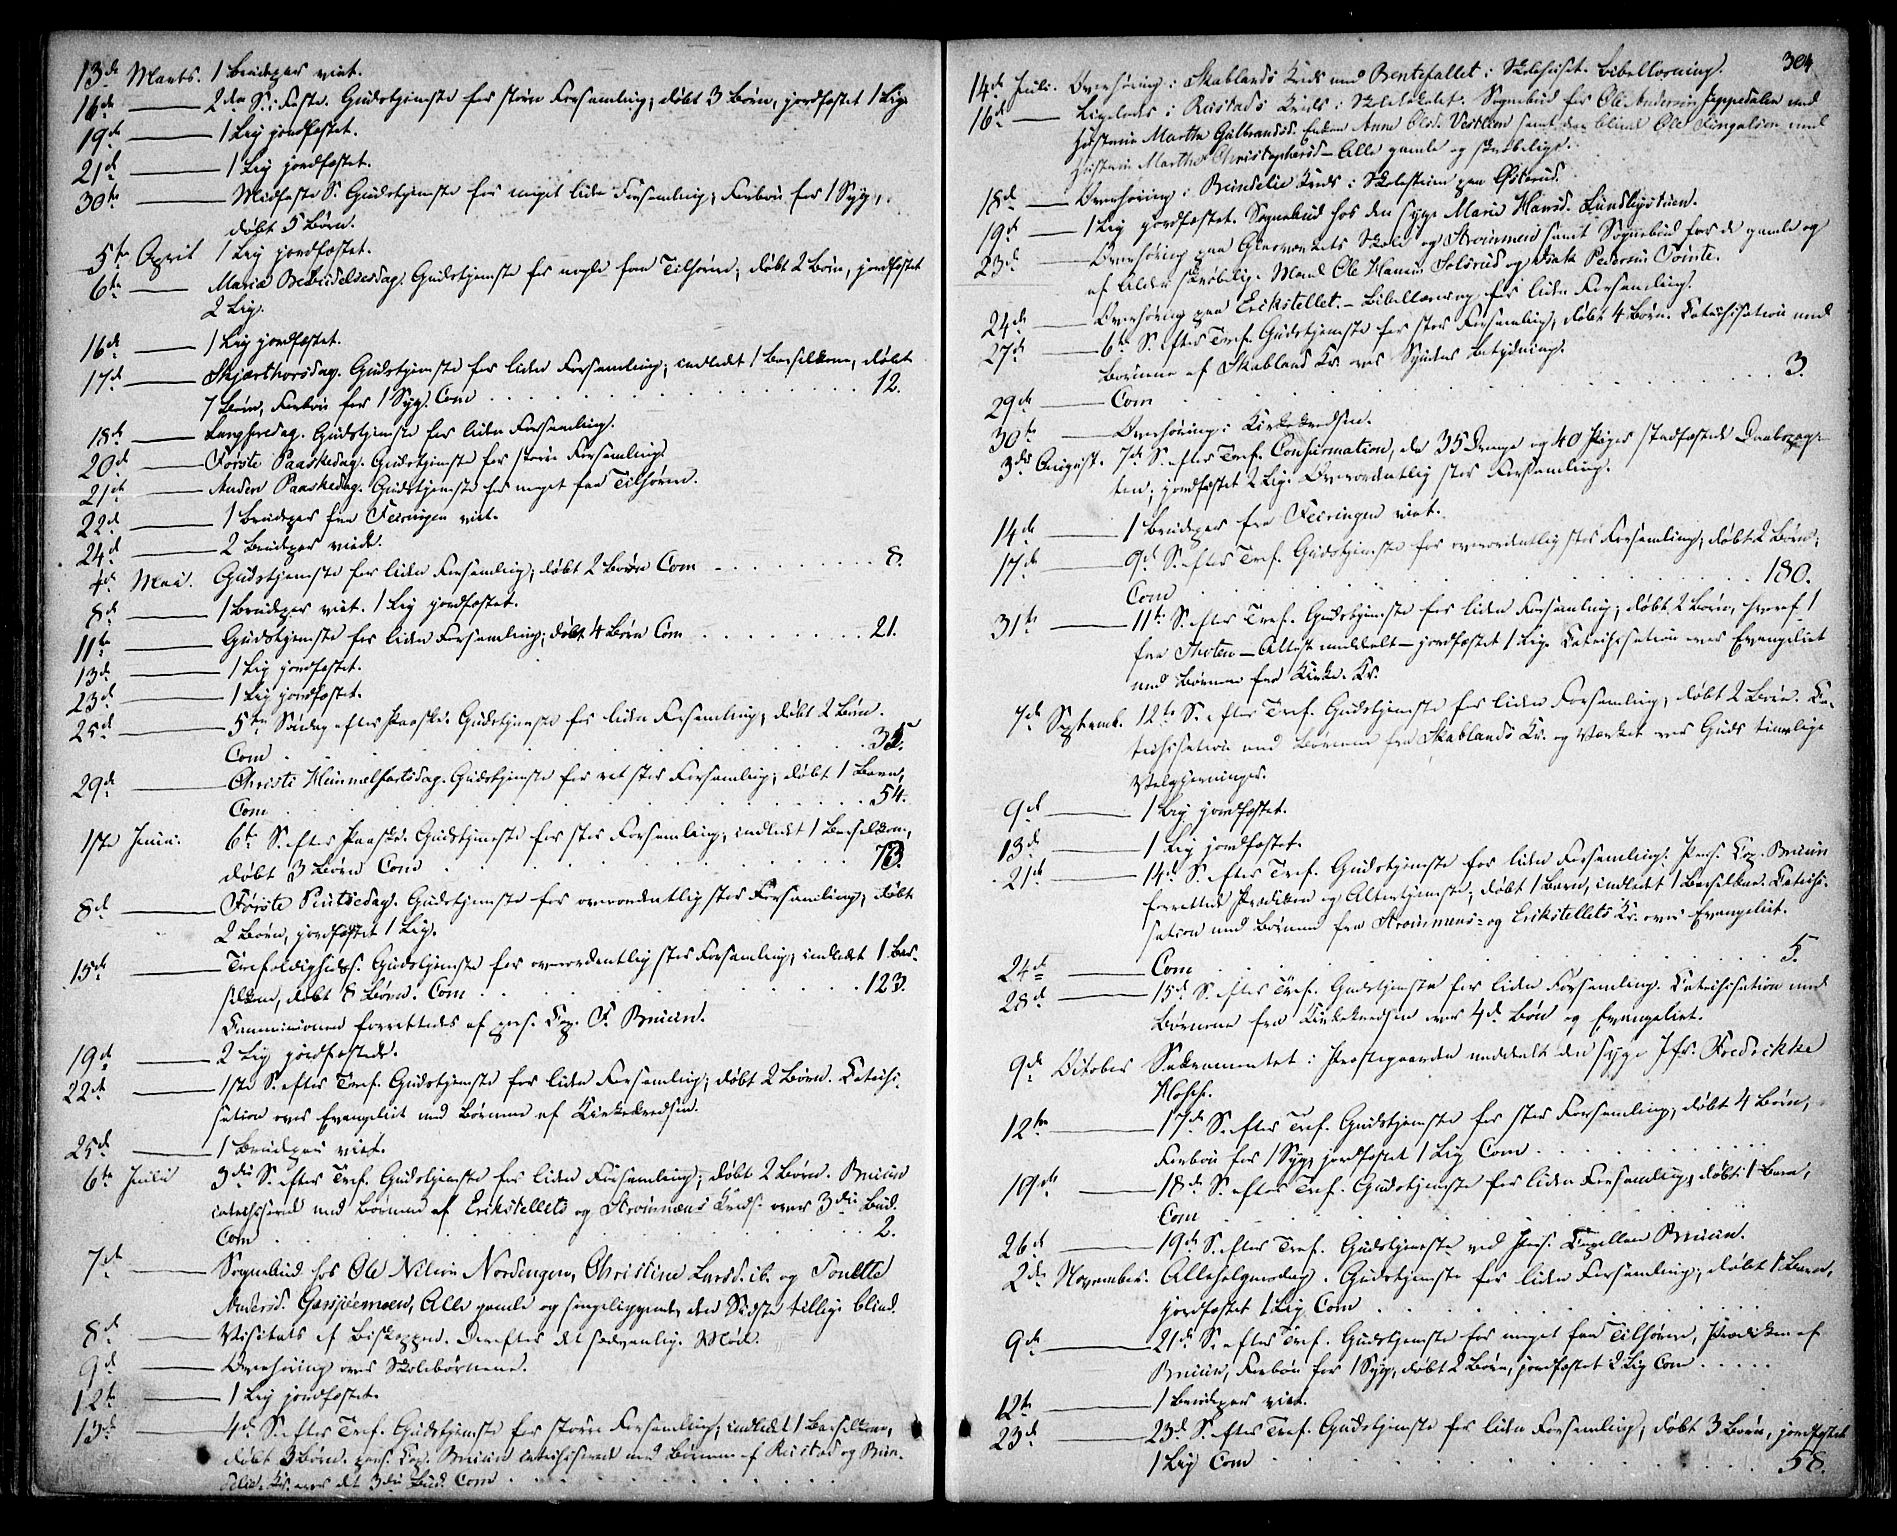 13de Marts. 1 Brudepar viet.
16de — 2den S. i Faste. Gudstjeneste for større Forsamling, døbt 3 Børn, jordfæstet 1 Lig.
19de — 1 Lig jordfæstet.
21de — 1 Lig jordfæstet.
30te — Midfaste S. Gudstjeneste for meget liden Forsamling; Forbøn for 1 Syg,
døbt 5 Børn.
5te April 1 Lig jordfæstet.
6te — Mariæ Bebudelsesdag. Gudstjeneste for nogle faa Tilhørere; døbt 2 Børn, jordfæstet
2 Lig.
16de — 1 Lig jordfæstet.
17de — Skjærthorsdag. Gudstjeneste for liden Forsamling; indledt 1 Barselkone, døbt
7 Børn, Forbøn for 1 Syg. Com . . . 12.
18de — Langfredag. Gudstjeneste for liden Forsamling.
20de — Første Paaskedag. Gudstjeneste for større Forsamling.
21de — Anden Paaskedag. Gudstjeneste for meget faa Tilhørere.
22de — 1 Brudepar fra Feiringen viet.
24de — 2 Brudepar viede.
4de Mai. Gudstjeneste for liden Forsamling; døbt 2 Børn Com . . . 8.
8de — 1 Brudepar viet. 1 Lig jordfæstet.
11te — Gudstjeneste for liden Forsamling; døbt 4 Børn Com . . . 21.
13de — 1 Lig jordfæstet.
23de — 1 Lig jordfæstet.
25de — 5te Søndag efter Paaske. Gudstjeneste for liden Forsamling, døbt 2 Børn.
Com . . . 35.
29de — Christi Himmelfartsdag. Gudstjeneste for ret stor Forsamling; døbt 1 Barn,
Com . . . 54.
1ste Juni. 6te S. efter Paaske. Gudstjeneste for stor Forsamling, indledt 1 Barselkone,
døbt 3 Børn Com . . . 73.
8de — Første Pintsedag. Gudstjeneste for overordentlig stor Forsamling, døbt
2 Børn, jordfæstet 1 Lig.
15de — Trefoldigheds S. Gudstjeneste for overordentlig stor Forsamling; indledt 1 Bar-
selkone, døbt 8 Børn. Com . . . 123.
Communionen forrettedes af pers. Cap. F. Bruun.
19de — 2 Lig jordfæstede.
22de — 1ste S. efter Tref. Gudstjeneste for liden Forsamling; døbt 2 Børn. Catechi-
sation over Evangeliet med Børnene af Kirkekredsen.
25de — 1 Brudepar viet.
6te Juli 3die S. efter Tref. Gudstjeneste for liden Forsamling; døbt 2 Børn. Bruun
catechiserede med Børnene af Erikstellets og Strømnæs Kreds over 3die Bud.
Com . . . 2.
7de — Sognebud hos Ole Nilsen Nordengen, Christine Larsd. ib. og Tonette
Andersd. Gassjuemoen, Alle gamle og sengeliggende, den Sidste tillige blind.
8de — Visitats af Biskoppen. Derefter det sedvanlige Møde.
9de — Overhøring over Skolebørnene.
12te — 1 Lig jordfæstet.
13de — 4de S. efter Tref. Gudstjeneste for større Forsamling; indledt 1 Barselkone,
døbt 3 Børn. pers. Cap. Bruun catechiserede med Børnene af Rustad og Brun-
delie Kr. over det 3die Bud. Com
304
14de Juli. Overhøring i Skablands Kreds med Bentefallet i Skolehuset. Bibellæsning.
16de — Ligeledes i Rustads Kreds i Skolelokalet. Sognebud for Ole Andersen Jeppedalen med
Hustrue Marthe Gulbrandsd. Enken Anne Olsd. Vestlien samt den blinde Ole Fingalsen med
Hustrue Marthe Christophersd. — Alle gamle og skrøbelige.
18de — Overhøring i Brundelie Kreds i Skolestuen paa Østerud.
19de — 1 Lig jordfæstet. Sognebud hos den syge Marie Hansd. Lundbystuen.
23de — Overhøring paa Glasværkets Skole og Strømmen samt Sognebud for de gamle og
af Alder skrøbelige Mænd Ole Hansen Solsrud og Isak Pedersen Tointe.
24de — Overhøring paa Erikstellet. — Bibellæsning for liden Forsamling.
27de — 6te S. efter Tref. Gudstjeneste for stor Forsamling, døbt 4 Børn. Catechisation med
Børnene af Skabland Kr. over Syndens Betydning.
29de — Com . . . 3.
30te — Overhøring i Kirkekredsen.
3die August. 7de S. efter Tref. Confirmation, da 35 Drenge og 40 Piger stadfæstede Daabspag-
ten; jordfæstet 2 Lig. Overordentlig stor Forsamling.
14de — 1 Brudepar fra Feiringen viet.
17de — 9de S. efter Tref. Gudstjeneste for overordentlig stor Forsamling; døbt 2 Børn,
Com . . . 180.
31te — 11te S. efter Tref. Gudstjeneste for liden Forsamling; døbt 2 Børn, hvoraf 1
fra Thoten — Attest meddelt — jordfæstet 1 Lig. Catechisation over Evangeliet
med Børnene fra Kirke-Kr.
7de Septemb. 12te S. efter Tref. Gudstjeneste for liden Forsamling, døbt 2 Børn. Ca-
techisation med Børnene fra Skablands Kr. og Værket over Guds timelige
Velgjerninger.
9de — 1 Lig jordfæstet.
13de — 1 Lig jordfæstet.
21de — 14de S. efter Tref. Gudstjeneste for liden Forsamling. Pers. Cap. Bruun
forrettede Prædiken og Altertjeneste; døbt 1 Barn, indledt 1 Barselkone. Catechi-
sation med Børnene fra Strømmens- og Erikstellets Kr. over Evangeliet.
24de — Com . . . 5.
28de — 15de S. efter Tref. Gudstjeneste for liden Forsamling. Catechisation med
Børnene fra Kirkekredsen over 4de Bøn og Evangeliet.
9de October Sakramentet i Præstegaarden meddelt den syge Jfr. Fredrikke
Hosch.
12te — 17de S. efter Tref. Gudstjeneste for stor Forsamling, døbt 4 Børn,
Forbøn for 1 Syg, jordfæstet 1 Lig Com . . .
19de — 18de S. efter Tref. Gudstjeneste for liden Forsamling, døbt 1 Barn,
Com . . .
26de — 19de S. efter Tref. Gudstjeneste ved Pers. Capellan Bruun.
2den November. Allehelgensdag. Gudstjeneste for liden Forsamling, døbt 1 Barn,
jordfæstet 1 Lig, Com . . .
9de — 21de S. efter Tref. Gudstjeneste for meget faa Tilhørere, Prædiken af
Bruun, Forbøn for 1 Syg, døbt 2 Børn, jordfæstet 2 Lig Com . . .
12te — 1 Brudepar viet.
23de — 23de S. efter Tref. Gudstjeneste for liden Forsamling, døbt 3 Børn, jordfæstet
1 Lig Com . . . 58.